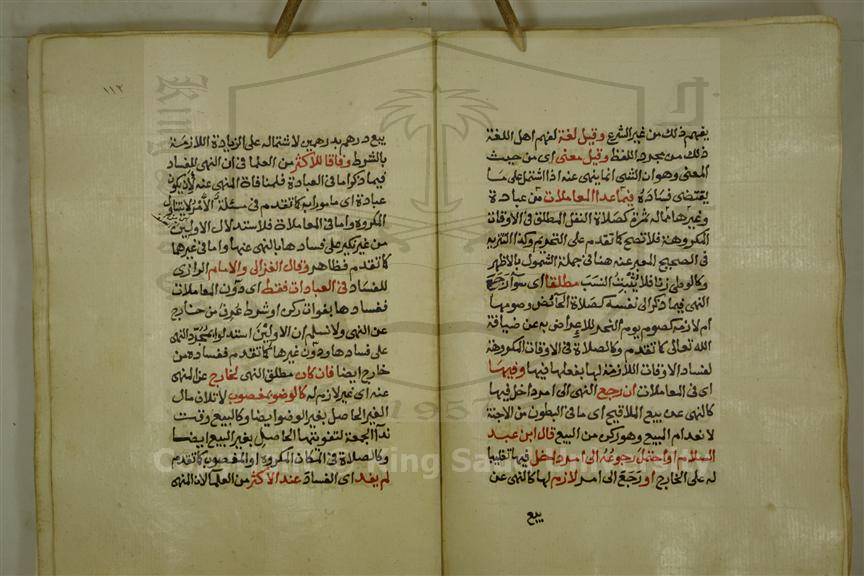 يفهم ذلك من غير الشرع وقيل لغة لفهم اهل اللغة
ذلك من مجرد اللفظ وقيل معنى اى من حيث
المعنى وهو ان الشى انما ينهى عنه اذا اشتمل على ما
يقتضى فساده فيما عدا المعاملات من عبادة
وغيرها مماله ثمرة كصلاة النفل المطلق فى الاوقات
المكروهة فلا تصح كما تقدم على التحريم وكذا التنزيه
فى الصحيح المعبر عنه هنا فى جملة الشمول بالاظهر
وكالوطى زنا فلا يثبت النسب مطلقا اى سوا رجع
النهى فيما ذكر الى نفسه كصلاة الحائض وصومها
ام لازمه كصوم يوم النحر للاعراض به عن ضيافة
الله تعالى كما تقدم وكالصلاة فى الاوقات المكروهة
لفساد الاوقات اللازمة لها بفعلها فيها وفيها
اى فى المعاملات ان رجع النهى الى امر داخل فيها
كالنهى عن بيع الملاقيح اى ما فى البطون من الاجنة
لانعدام المبيع وهو ركن من البيع قال ابن عبد
السلام او احتمل رجوعه الى امر داخل فيها تغليبا
له على الخارج او رجع الى امر لازم لها كالنهى عن
بيع
١١٢
بيع درهم بدرهمين لاشتماله على الزيادة اللازمة
بالشرط وفاقا للاكثر من العلما فى ان النهى للفساد
فيما ذكر اما فى العبادة فلمنافاة المنهى عنه لان يكون
عبادة اى مامورا به كما تقدم فى مسئلة الامر لا يتناول
المكروه واما فى المعاملات فلاستدلال الاولين
من غير نكير على فسادها بالنهى عنها واما فى غيرهما
كما تقدم فظاهر وقال الغزالى والامام الرازى
للفساد فى العبادات فقط اى دون المعاملات
ففسادها بفوات ركن او شرط عرف من خارج
عن النهى ولا نسلم ان الاولين استدلوا بمجرد النهى
على فسادها ودون غيرها كما تقدم ففساده من
خارج ايضا فان كان مطلق النهى لخارج عن المنهى
عنه اى غير لازم له كالوضو بمغصوب لاتلاف مال
الغير الحاصل بغير الوضو ايضا وكالبيع وقت
ندا الجمعة لتفويتها الحاصل بغير البيع ايضا
وكالصلاة فى المكان المكروه او المغصوب كما تقدم
لم يفد اى الفساد عند الاكثر من العلما لان المنهى